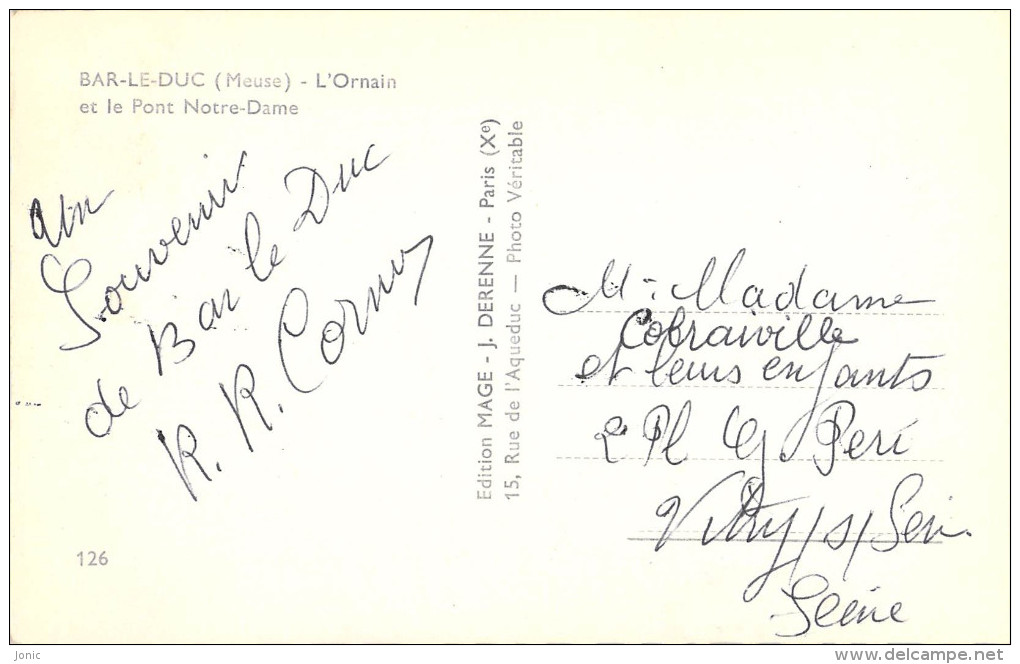 BAR-LE-DUC (Meuse) - L'Ornain
et le Pont Notre-Dame
Un
Souvenir
de Bar le Duc
R. R. Cornu
126
Edition MAGE - J. DERENNE - Paris (Xe)
15, Rue de l'Aqueduc — Photo Véritable
M. Madame
Cobraiville
et leurs enfants
2 Pl G Peri
Vitry/s/Sein
Seine
Jonic
delcampe.net